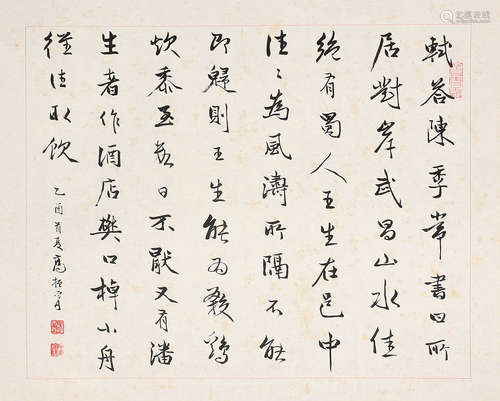 軾答陳季常書曰所
居對岸武昌山水佳
絕有蜀人王生在邑中
往〻為風濤所隔不能
即歸則王生能為殺鷄
炊黍至數日不厭又有潘
生者作酒店樊口棹小舟
徑往取飲
乙酉首夏高振霄